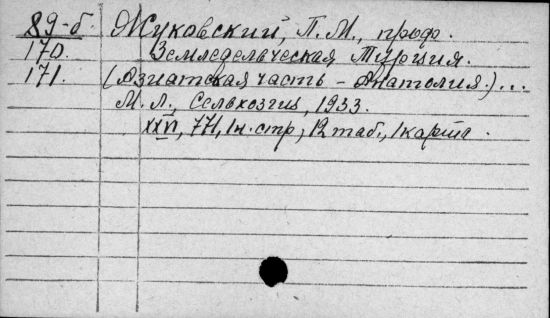 89-б. Жуковский, П. М., проф.
170. Земледельческая Турция.
171. (Азиатская часть - Анатолия.)...
М. Л., Сельхозгиз, 1933.
XXVI, 771, 1 н. стр., 12 таб., 1 карта.